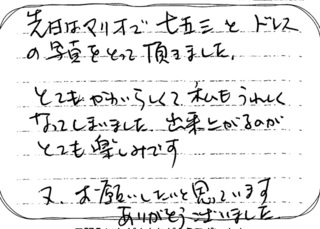 先日はマリオで七五三とドレス
の写真をとって頂きました。
とてもかわいらしくて私もうれしく
なってしまいました。出来上がるのが
とても楽しみです
又、お願いしたいと思っています
ありがとうございました